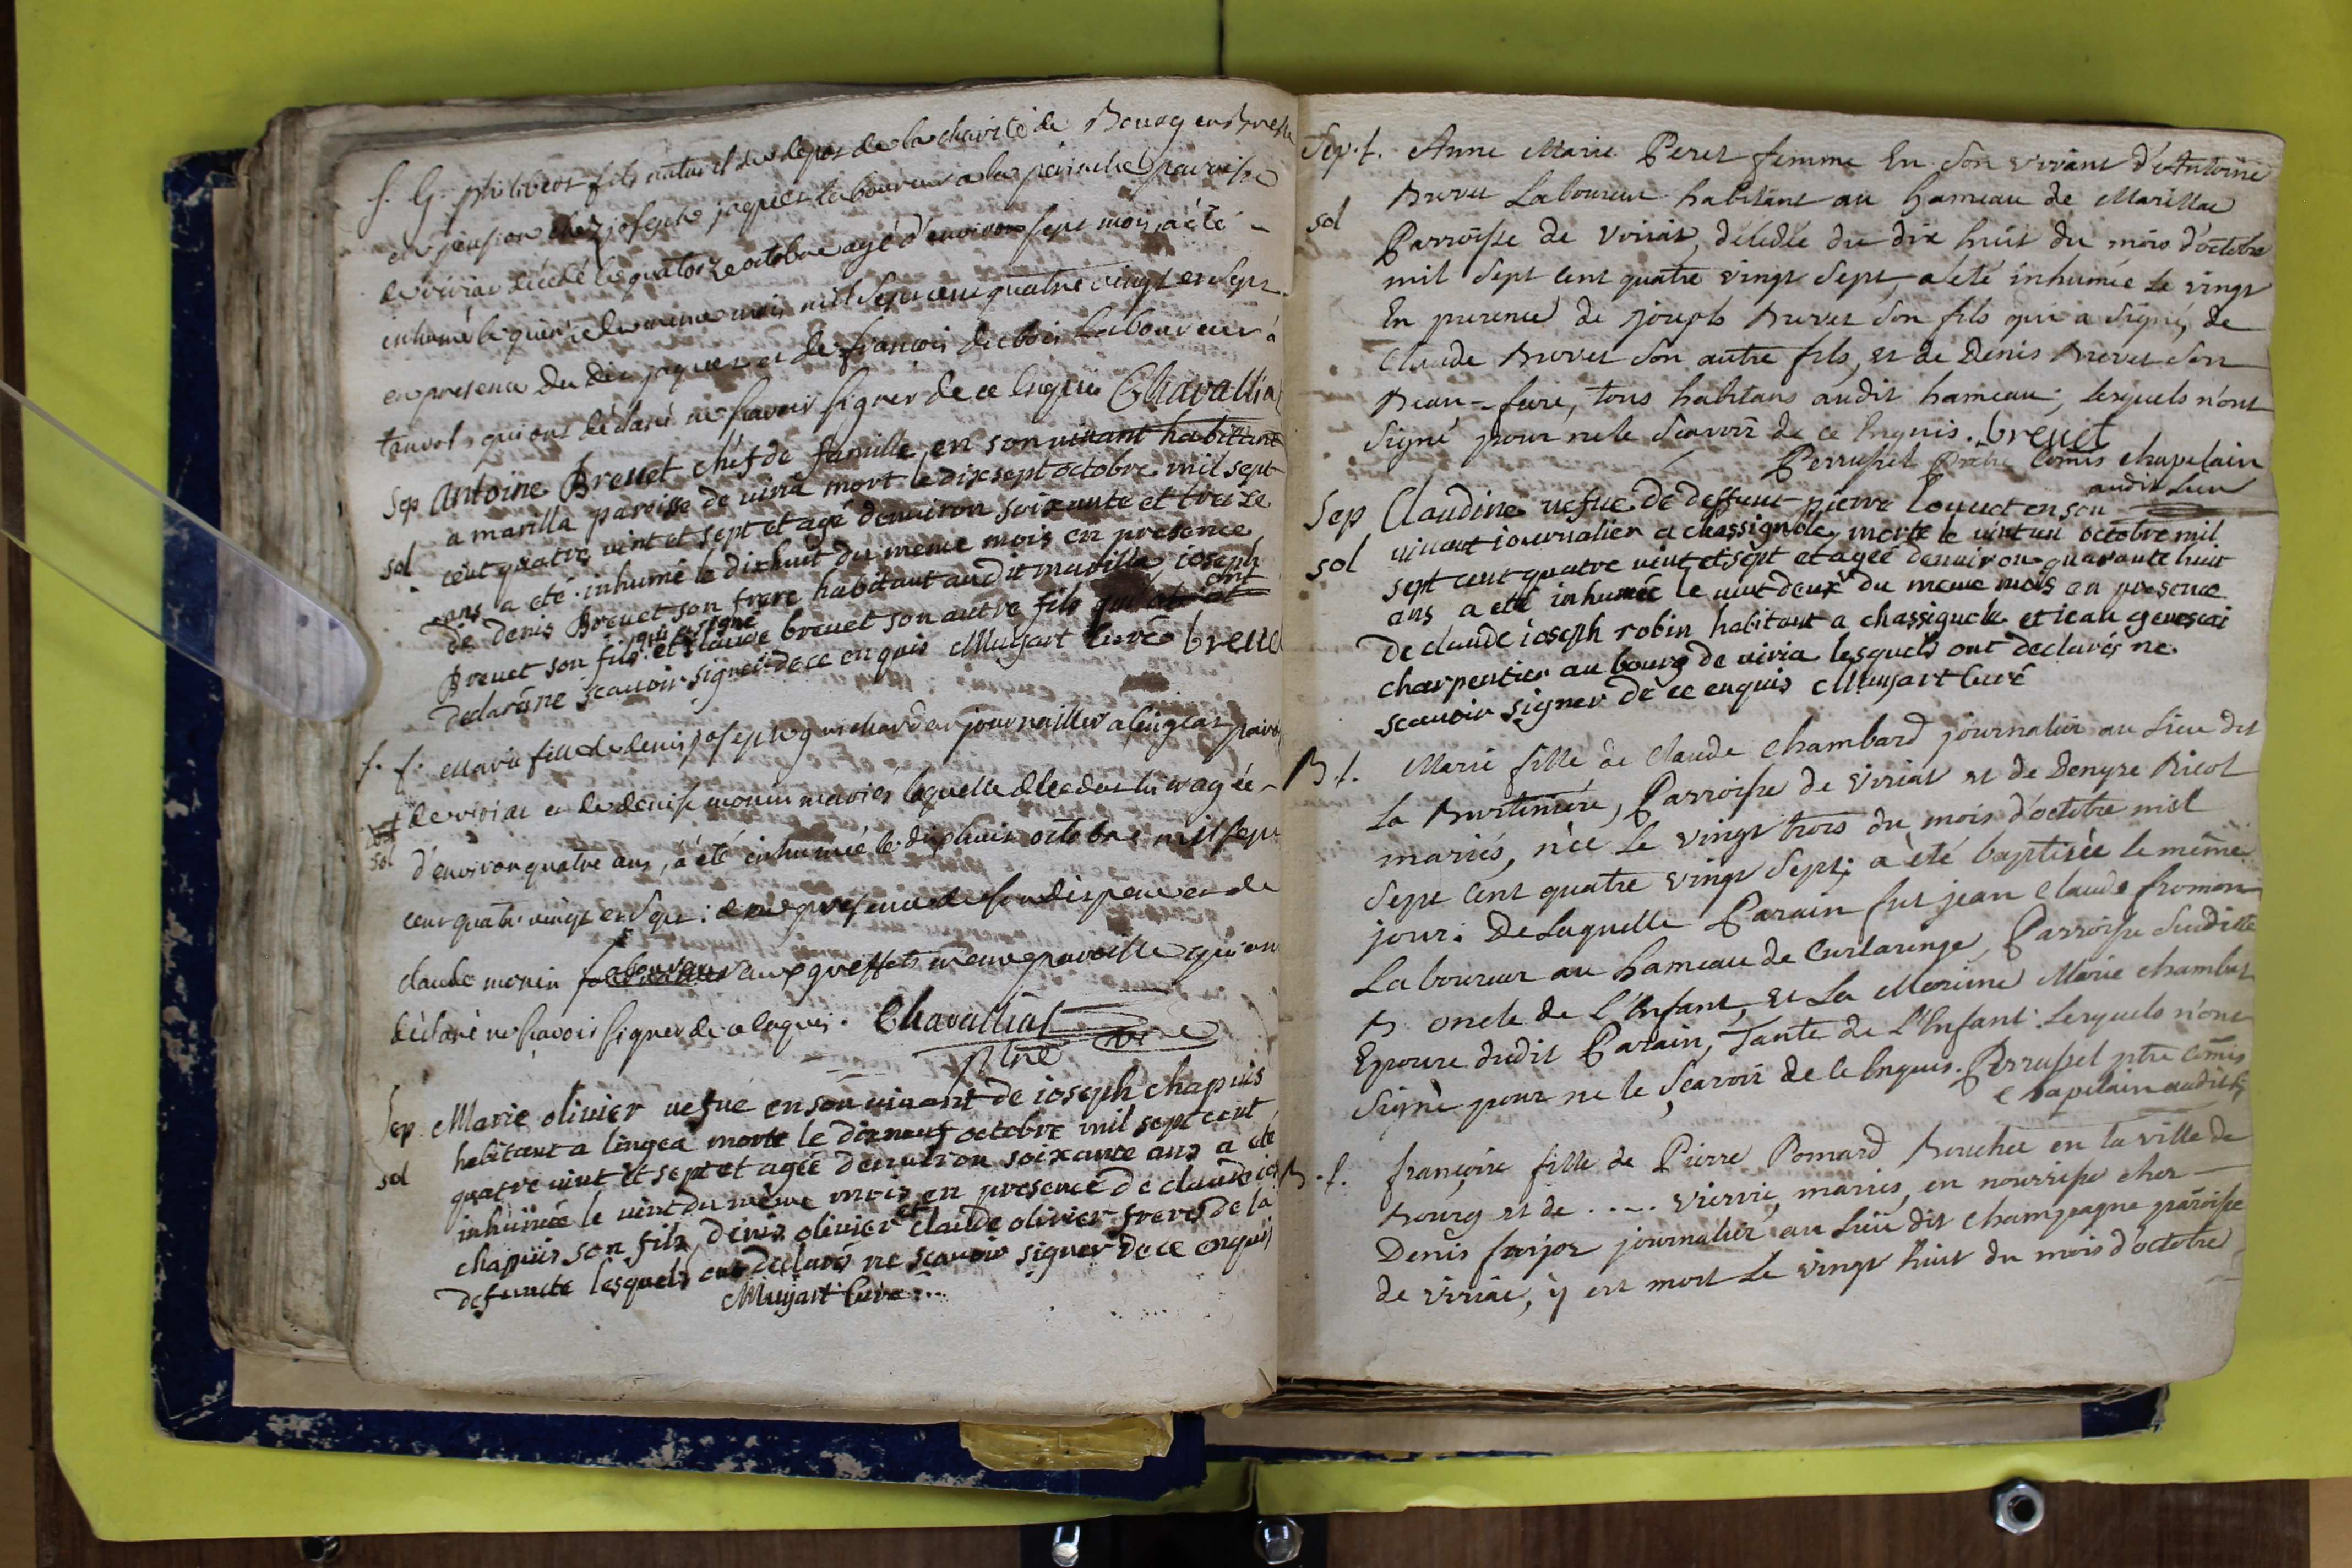 S. G. philibert fils naturel du depos de la charité de Bourg en Bresse
en pension chez joseph joquet laboureur a la parroisse
de viriat décédé le quatorze octobre agé d'environ sept mois, a été
inhumé le quinze du meme mois mil sept cent quatre vingt et sept
en presence du dit joquet et de francois dubois laboureur à
qui ont déclaré ne scavoir signer de ce enquis Chavalliat
Sep Antoine Breuet chef de famille en son uiuant habitant
a marilla paroisse de uiria mort le dixsept octobre mil sept
sol cent quatre uint et sept et agé denuiron soixante et treize
ans a eté inhumé le dixhuit du meme mois en presence
de denis Breuet son frere habitant au dit marilla, ioseph
Breuet son fils qui a signé et claude breuet son autre fils qui ont
declaré ne scauoir signer de ce enquis Muyart Curé breuet
S. f. Marie fille de denis joseph journallier a lingeat parr
de viriat et de denise monin mariés laquelle décédée agée
sol d'environ quatre ans, a été inhumée le dixhuit octobre mil sept
cent quatre vingt et sept: en presence de son dit pere et de
claude monin laboureur aux greffets meme paroisse qui ont
déclaré ne scavoir signer de ce enquis. Chavalliat
ptre
Sep. Marie oliuier uefue en son uiuant de ioseph chapuis
habitant a lingea morte le dixneuf octobre mil sept cent
sol quatre uint et sept et agée denuiron soixante ans a eté
inhumée le uint du même mois en presence de claude ios
chapuis son fils, denis oliuier et claude oliuier freres de la
defuncte lesquels ont declaré ne scauoir signer de ce enquis
Muyart Curé
Sep. f. Anne Marie Peret femme En son vivant d'Antoine
Brevet Laboureur habitant au hameau de Marillat
sol Parroisse de Viriat, décédée du dix huit du mois d'octobre
mil sept cent quatre vingt sept, a été inhumée le vingt
En presence de joseph Brevet son fils qui a signé, de
Claude Brevet son autre fils, et de Denis Brevet son
Beau-frere, tous habitans audit hameau; lesquels n'ont
signé pour ne le scavoir de ce Enquis. breuet
Perrussel Prêtre Comis chapelain
audit Lieu
Sep Claudine uefue de deffunt pierre Conuet en son
uiuant iournalier a chassignole, morte le uint un octobre mil
sol sept cent quatre uint et sept et agée denuiron quarante huit
ans a eté inhumée le uint deux du meme mois en presence
de claude ioseph robin habitant a chassignole et iean
charpentier au bourg de uiria lesquels ont declarés ne
scauoir signer de ce enquis Muyart Curé
B. f. Marie fille de Claude Chambard journalier au Lieu dit
La Bertinière, Parroisse de Viriat et de Denyse Bicot
mariés, née le vingt trois du mois d'octobre mil
sept cent quatre vingt sept; a été baptisée le même
jour: De Laquelle Parain fut jean Claude fromon
Laboureur au hameau de Curtaringe, Parroisse susditte
B oncle de l'Enfant, et La Marine Marie chambar
Epouse dudit Parain, Tante de l'Enfant. Lesquels n'ont
signé pour ne le scavoir de ce Enquis. Perrussel ptre Comis
chapelain audit L
B. f. françoise fille de Pierre Pomard Boucher en la ville de
Bourg et de ..... mariés, en nourrisse chez
Denis journalier au Lieu dit Champagne paroisse
de Viriat, y est mort le vingt huit du mois d'octobre